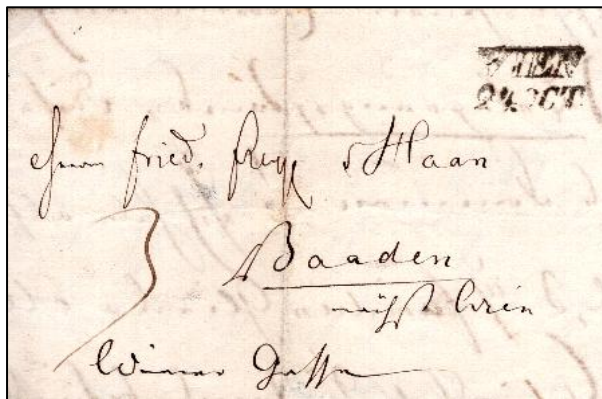 WIEN
24 OCT
Herrn Fried. v Haan
3
Baaden
nächst Wien
Wiener Gasse